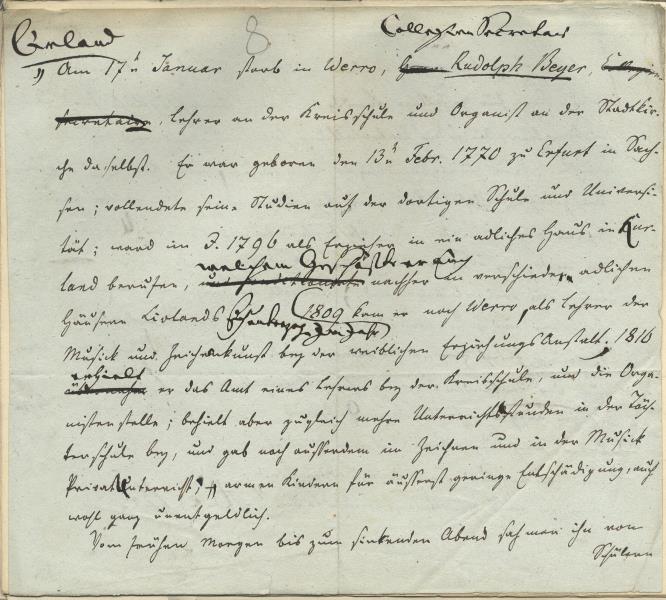 8
Collegien Secretair
Am 17n Januar starb in Werro, Rudolph Beyer,
secretaire, Lehrer an der Kreisschule und Organist an der Stadtkir-
che daselbst. Er war geboren den 13n Febr. 1770 zu Erfurt in Sach-
sen; vollendete seine Studien auf der dortigen Schule und Universi-
tät; ward im J. 1796 als Erzieher in ein adliches Haus in Kur-
welchem Geschäfte er auch
land berufen, nachher in verschiedenen adlichen
Häusern Livlands 1809 kam er nach Werro, als Lehrer der
Im Jahr
Musick und Zeichenkunst bey der weiblichen Erziehungs Anstalt. 1816
erhielt
er das Amt eines Lehrers bey der Kreisschule, und die Orga-
nistenstelle; behielt aber zugleich mehre Unterrichtsstunden in der Töch-
terschule bey, und gab noch ausserdem im Zeichnen und in der Musick
Privatunterricht, armen Kindern für äusserst geringe Entschädigung, auch
wohl ganz unentgeldlich.
Vom frühen Morgen bis zum sinkenden Abend sah man ihn von
Schülern